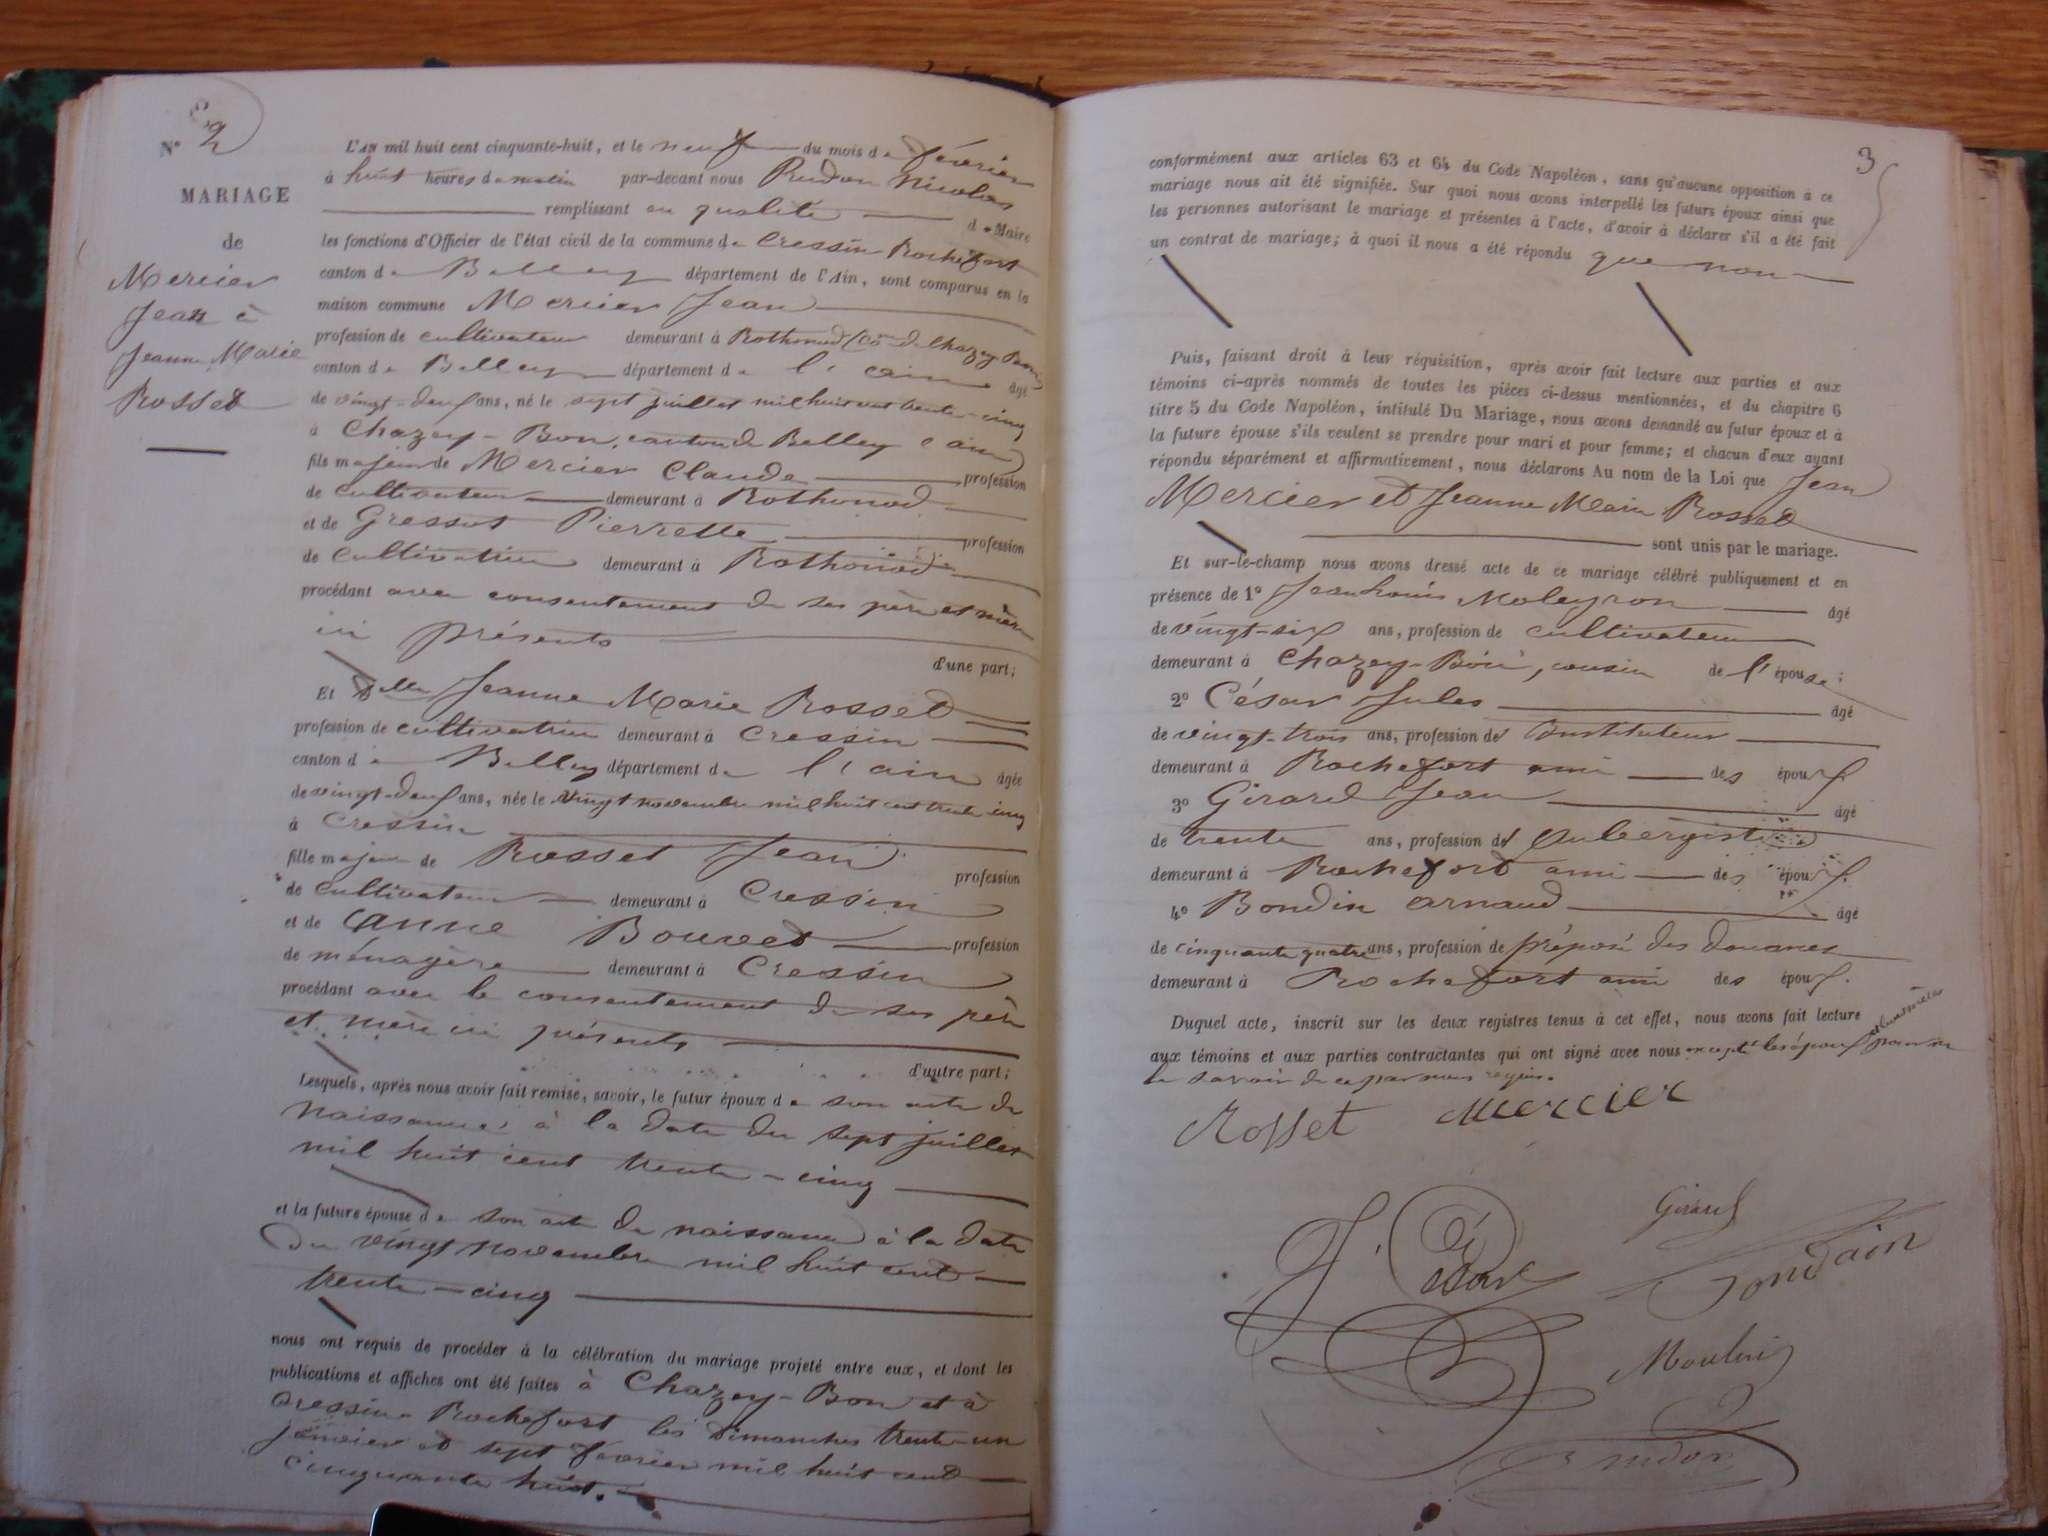 N° 2
MARIAGE
de
Mercier
Jean à
Jeanne Marie
Rosset
L'AN mil huit cent cinquante-huit, et le neuf du mois de février
à huit heures de matin par-devant nous Pudon Nicolas
remplissant en qualité de Maire
les fonctions d'Officier de l'état civil de la commune de Cressin-Rochefort
canton de Belley département de l'Ain, sont comparus en la
maison commune Mercier Jean
profession de cultivateur demeurant à Rothonod Con de Chazey-Bons
canton de Belley département de l'ain âgé
de vingt-deux ans, né le sept juillet mil huit cent trente-cinq
à Chazey-Bon, canton de Belley (ain)
fils majeur de Mercier Claude profession
de cultivateur demeurant à Rothonod
et de Gressot Pierrette profession
de cultivatrice demeurant à Rothonod
procédant avec consentement de ses père et mère
ici présents
d'une part;
Et Delle Jeanne Marie Rosset
profession de cultivatrice demeurant à Cressin
canton de Belley département de l'ain âgée
de vingt-deux ans, née le vingt novembre mil huit cent trente cinq
à Cressin
fille majeure de Rosset Jean profession
de cultivateur demeurant à Cressin
et de anne Bouvet profession
de ménagère demeurant à Cressin
procédant avec le consentement de ses père
et mère ici présents
d'autre part;
Lesquels, après nous avoir fait remise, savoir, le futur époux de son acte de
naissance à la date du sept juillet
mil huit cent trente-cinq
et la future épouse de son acte de naissance à la date
du vingt novembre mil huit cent
trente-cinq
nous ont requis de procéder à la célébration du mariage projeté entre eux, et dont les
publications et affiches ont été faites à Chazey-Bon et à
Cressin-Rochefort les dimanches trente-un
janvier et sept février mil huit cent
cinquante huit.
3
conformément aux articles 63 et 64 du Code Napoléon, sans qu'aucune opposition à ce
mariage nous ait été signifiée. Sur quoi nous avons interpellé les futurs époux ainsi que
les personnes autorisant le mariage et présentes à l'acte, d'avoir à déclarer s'il a été fait
un contrat de mariage; à quoi il nous a été répondu que non
Puis, faisant droit à leur réquisition, après avoir fait lecture aux parties et aux
témoins ci-après nommés de toutes les pièces ci-dessus mentionnées, et du chapitre 6
titre 5 du Code Napoléon, intitulé Du Mariage, nous avons demandé au futur époux et à
la future épouse s'ils veulent se prendre pour mari et pour femme; et chacun d'eux ayant
répondu séparément et affirmativement, nous déclarons Au nom de la Loi que Jean
Mercier et Jeanne Marie Rosset
sont unis par le mariage.
Et sur-le-champ nous avons dressé acte de ce mariage célébré publiquement et en
présence de 1° Jean Louis Moleyron âgé
de vingt-six ans, profession de cultivateur
demeurant à Chazey-Bon, cousin de l'épouse;
2° César Jules âgé
de vingt-trois ans, profession de Instituteur
demeurant à Rochefort ami des époux
3° Girard Jean âgé
de trente ans, profession de Aubergiste
demeurant à Rochefort ami des époux
4° Bondin arnaud âgé
de cinquante quatre ans, profession de préposé des douanes
demeurant à Rochefort ami des époux.
Duquel acte, inscrit sur les deux registres tenus à cet effet, nous avons fait lecture
aux témoins et aux parties contractantes qui ont signé avec nous excepté les époux et leurs mères pour ne
le savoir de ce par nous requis.
Rosset Mercier
J. César
Girard
Moulin
Pudon